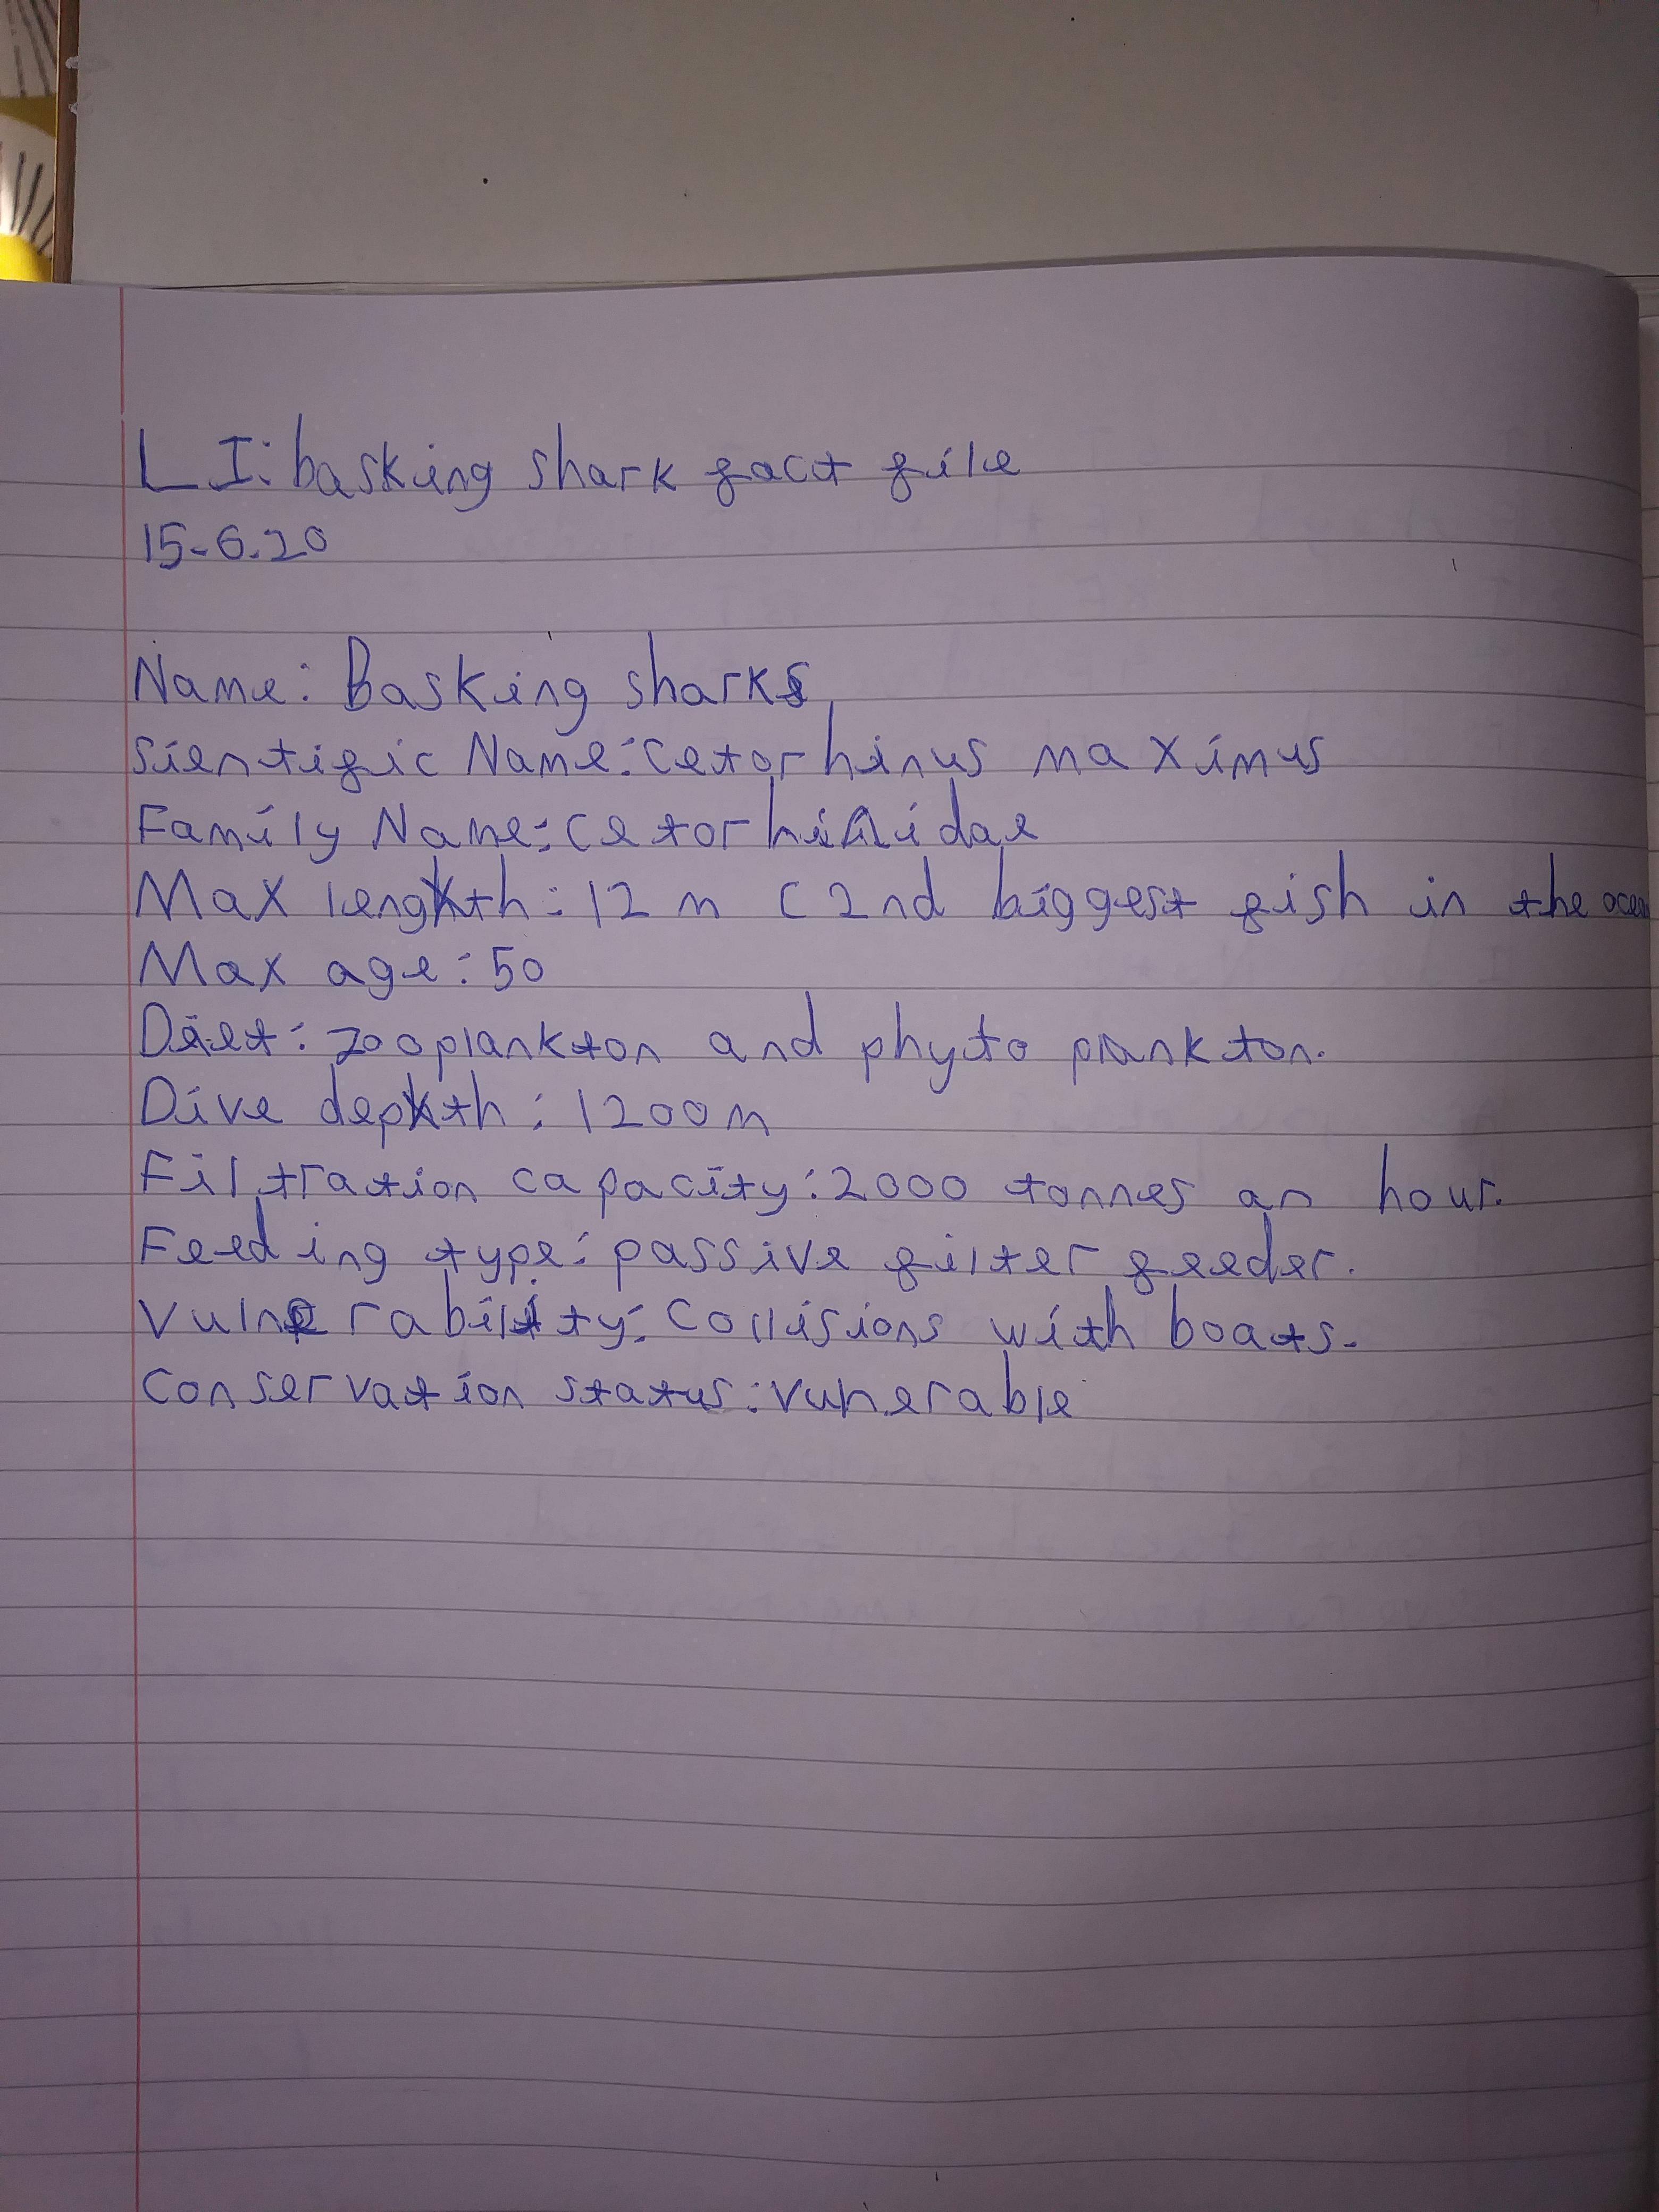 LI: basking shark fact file
15.6.20
Name: Basking sharks
Sientific Name: cetorhinus maximus
Family Name: cetorhinidae
Max length: 12 m (2nd biggest fish in the ocean
Max age: 50
Diet: zooplankton and phyto plankton.
Dive depth: 1200m
Filtration capacity: 2000 tonnes an hour.
Feeding type: passive filter feeder.
Vulnerability: Collisions with boats.
Conservation status: vunerable